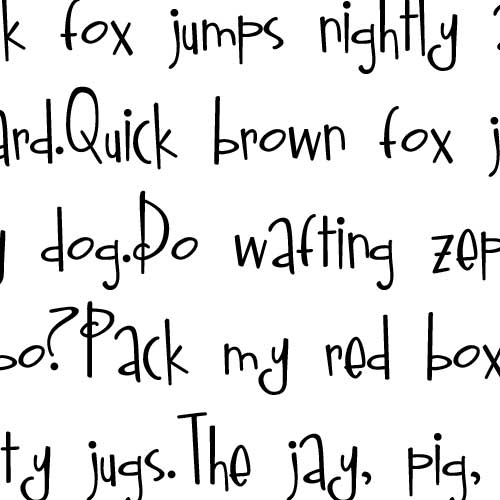 k fox jumps nightly
ard.Quick brown fox j
y dog.Do wafting zep
oo?Pack my red box
ty jugs.The jay, pig,